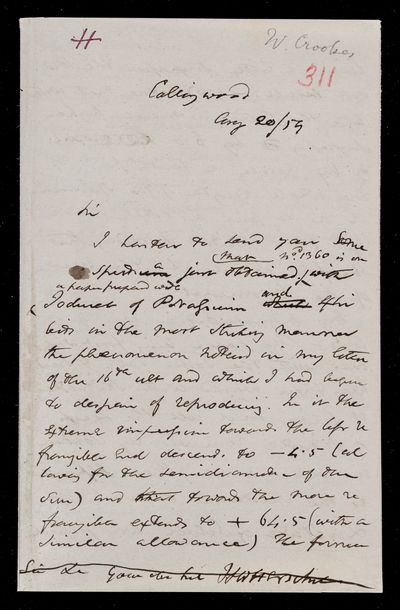 11
W. Crookes
311
Collingwood
Aug 20/59
Sir
I hasten to send you some
(That No 1360 is on
Spectra just obtained with
a paper prepared with
Ioduret of Potassium and
exhibits in the most striking manner
the phænomenon noticed in my letter
of the 16th ult and which I had begun
to despair of reproducing. In it the
extreme impression towards the less re
frangible end descends to – 4.5 (al
lowing for the semidiameter of the
Sun) and towards the more re
frangible extends to + 64.5 (with a
similar allowance) The former